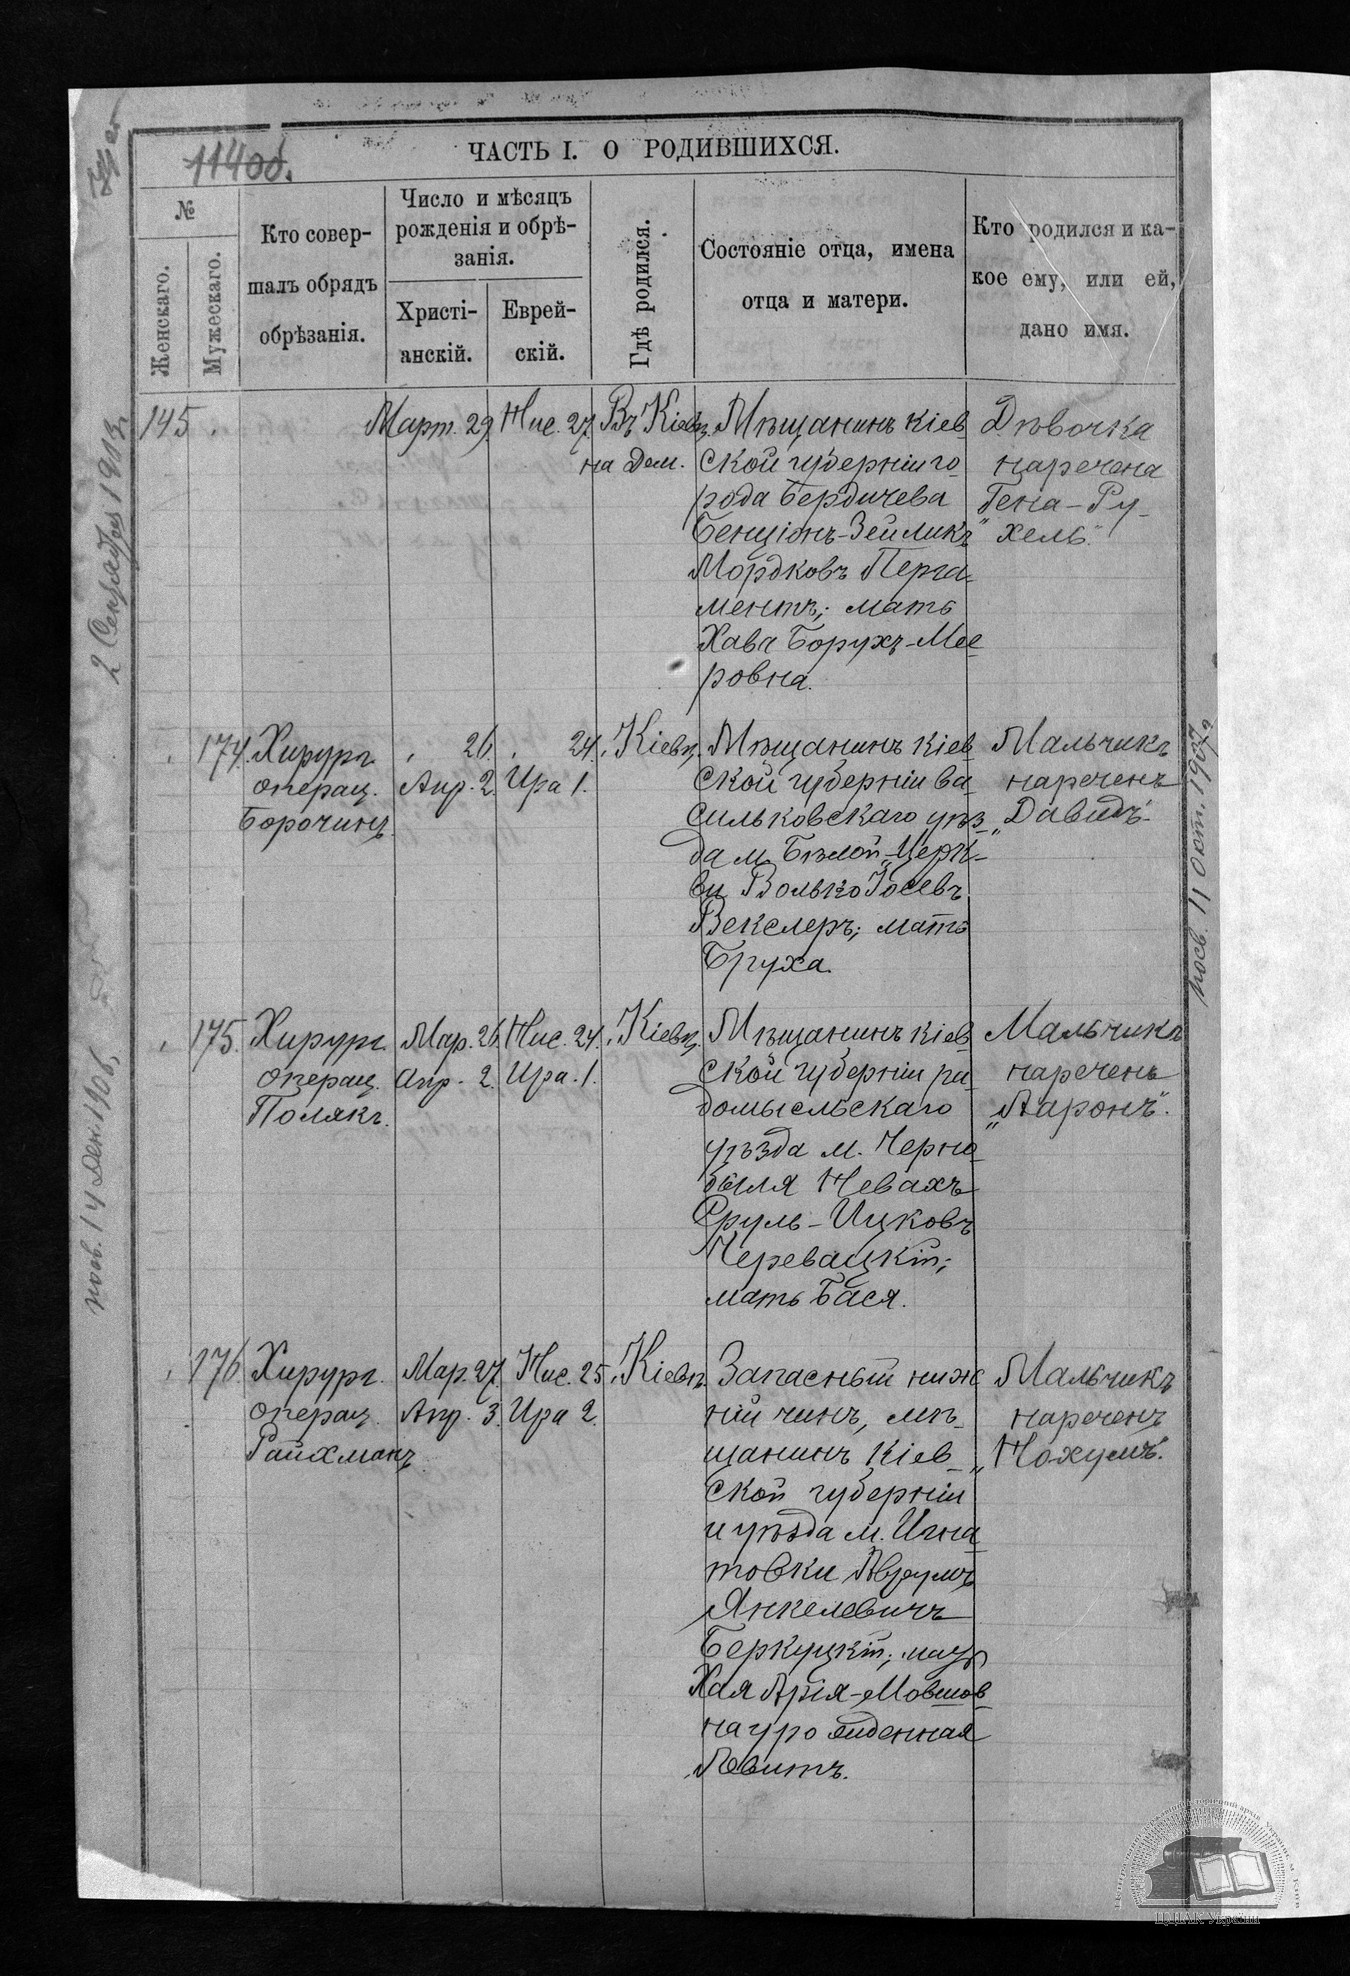 11400.
ЧАСТЬ I. О РОДИВШИХСЯ.
№
Женскаго.
Мужескаго.
Кто совер-
шалъ обрядъ
обрѣзанія.
Число и мѣсяцъ
рожденія и обрѣ-
занія.
Христі-
анскій.
Еврей-
скій.
Гдѣ родился.
Состояніе отца, имена
отца и матери.
Кто родился и ка-
кое ему, или ей,
дано имя.
145.
Март. 29.
Нис. 27.
Въ Кіевѣ
на Дем.
Мѣщанинъ Кіев
ской губерніи го-
рода Бердичева
Бенціонъ-Зейликъ
Мордковъ Перга-
ментъ; мать
Хава Борухъ-Мее
ровна.
Дѣвочка
наречена
Гена-Ру-
„хель".
174.
Хирург.
операц.
Борочинъ.
„ 26.
Апр. 2.
„ 24.
Ира 1.
„ Кіевѣ.
Мѣщанинъ Кіев
ской губерніи ва-
сильковскаго уѣз-
да м. Бѣлой-Церк-
ви Волько Іосевъ
Векслеръ; мать
Бруха.
Мальчикъ
нареченъ
„Давидъ"
175.
Хирург.
операц.
Полякъ.
Мар. 26.
Апр. 2.
Нис. 24.
Ира. 1.
„ Кіевѣ.
Мѣщанинъ Кіев
ской губерніи ра-
домысльскаго
уѣзда м. Черно-
быля Невахъ
Сруль-Ицковъ
Черевацкій;
мать Бася.
Мальчикъ
нареченъ
„Ааронъ".
176.
Хирург.
операц.
Райхманъ.
Мар. 27.
Апр. 3.
Нис. 25.
Ира 2.
„ Кіевѣ.
Запасный ниж
ній чинъ, мѣ-
щанинъ Кіев
ской губерніи
и уѣзда м. Игна
товки Аврумъ
Янкелевичъ
Беркуцкій; мать
Хая Арія-Мовшов
на урожденная
Левитъ.
Мальчикъ
нареченъ
„Нохумъ".
2 Сентября 1913 г.
посв. 14 Дек. 1906,
посв. 11 Окт. 1907 г
ЦДІАК України